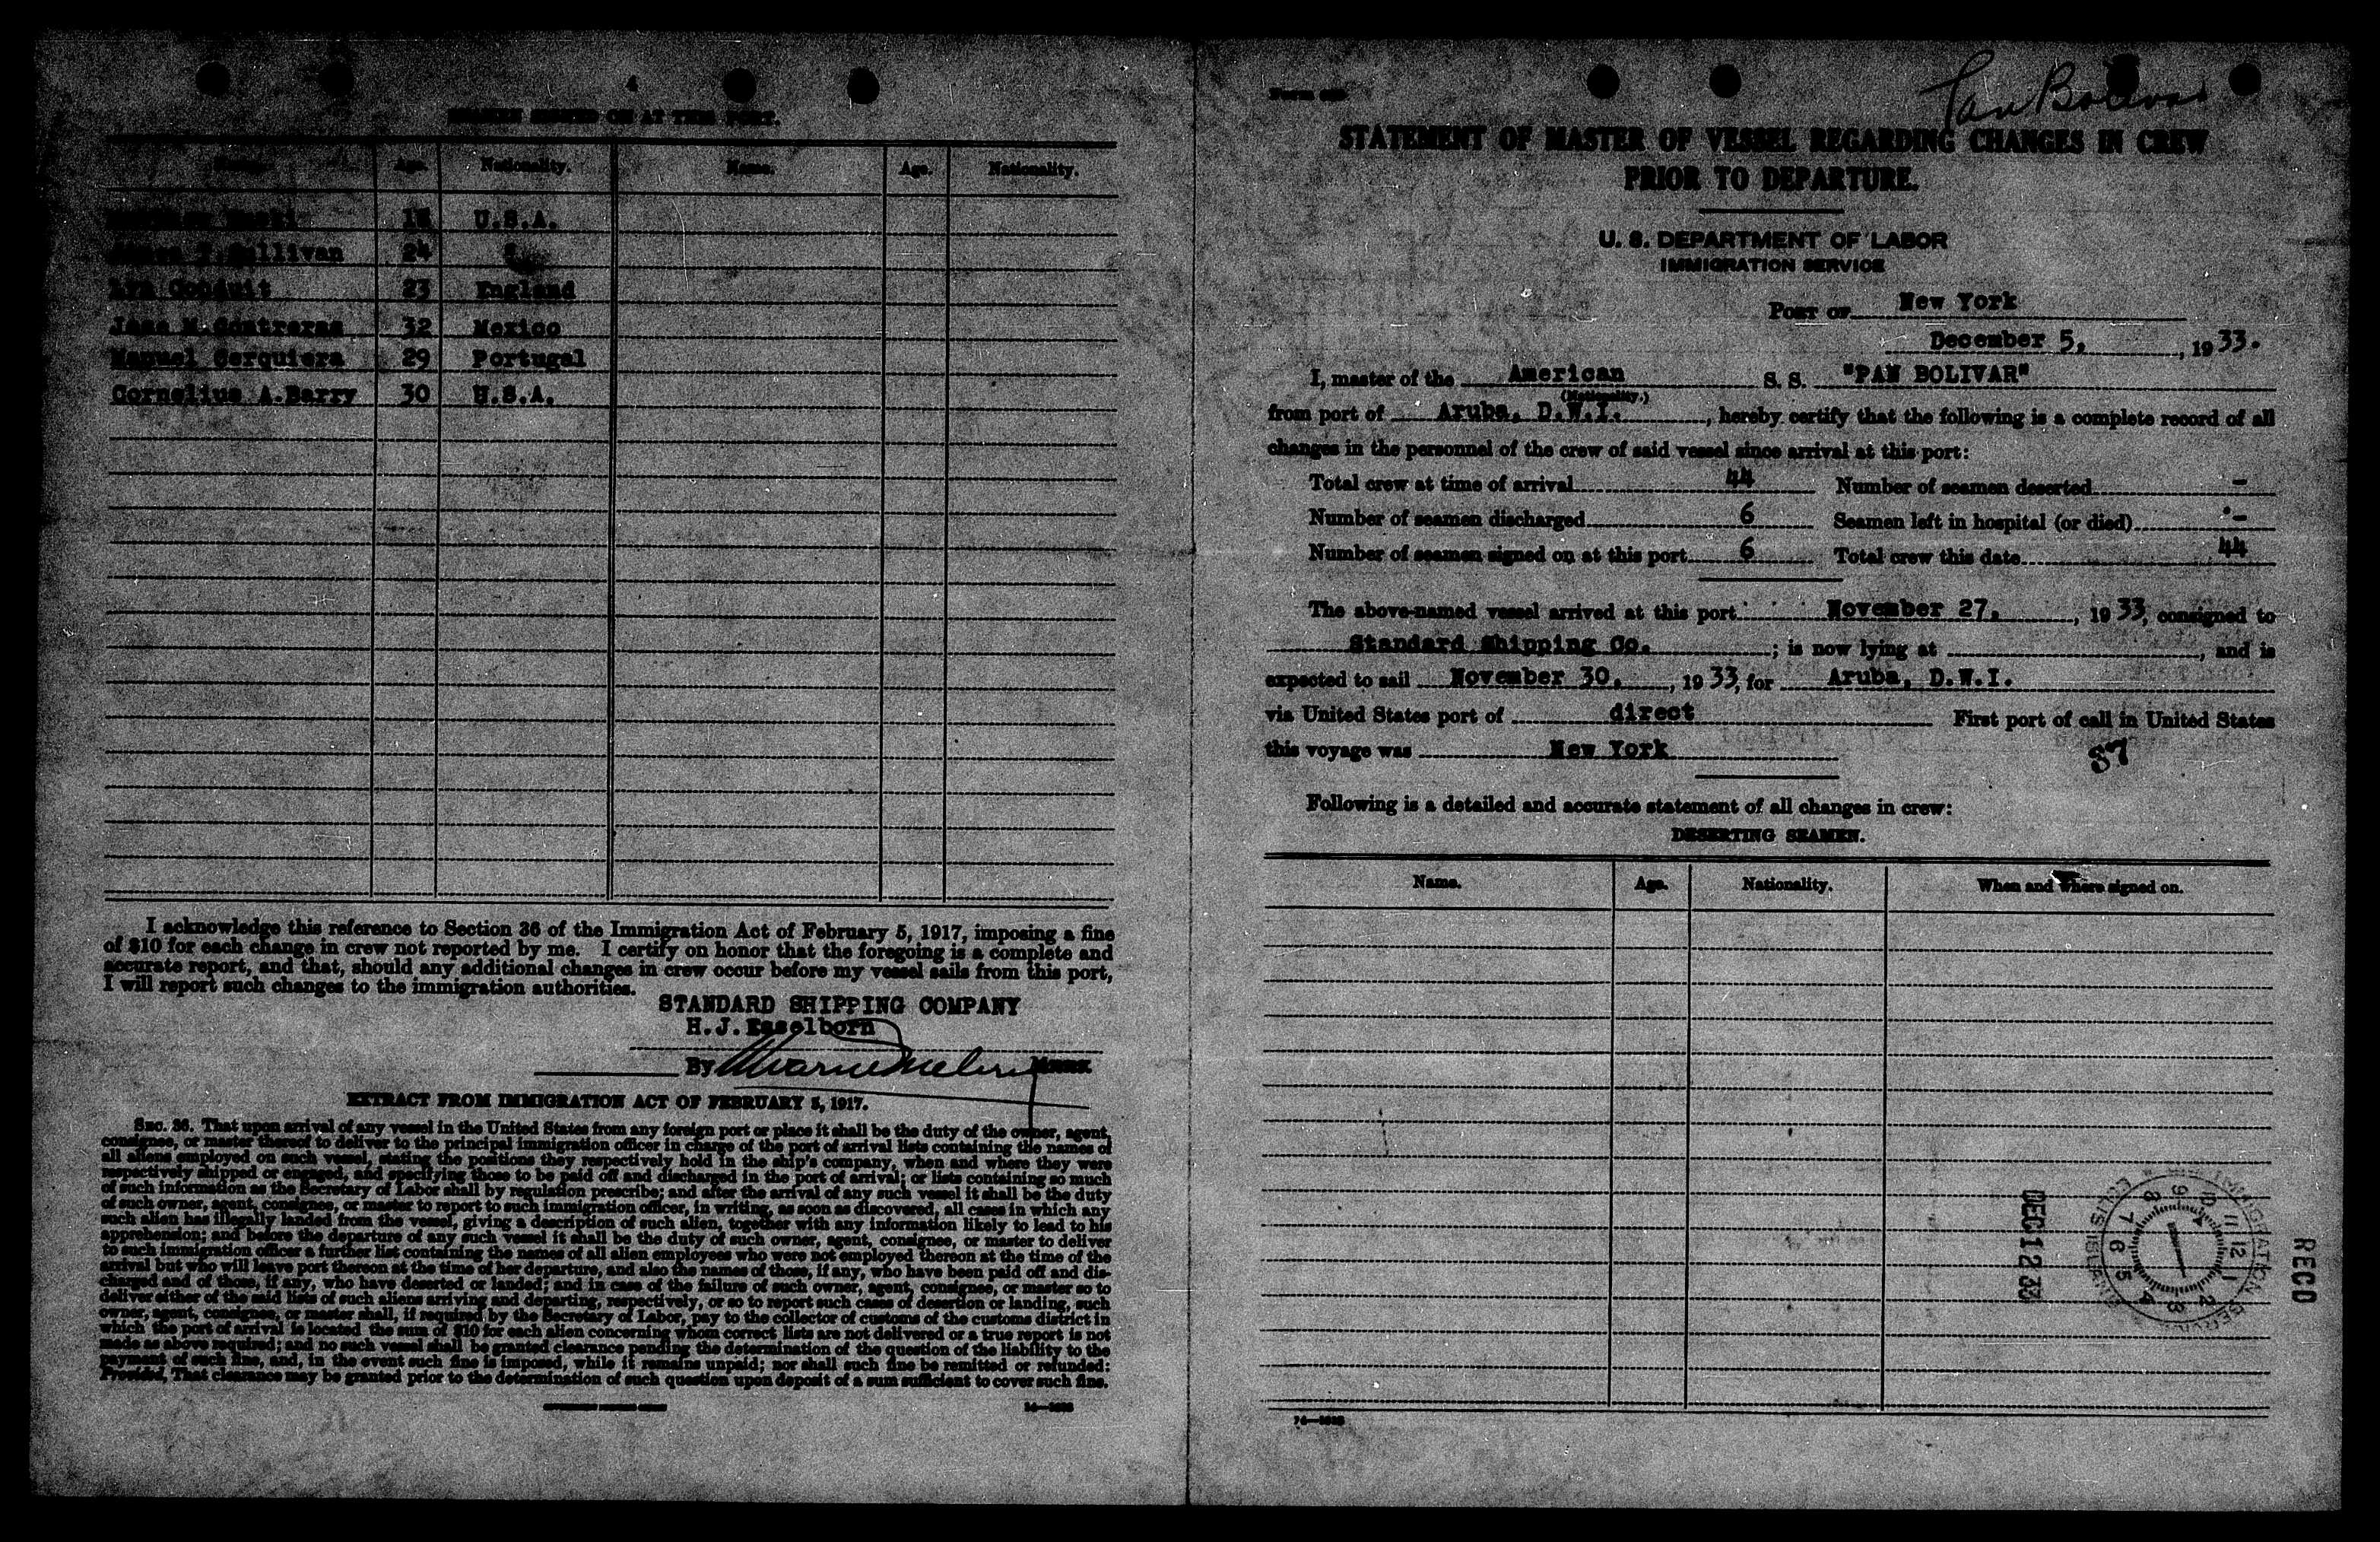 4
SEAMEN SIGNED ON AT THIS PORT.
Name. Age. Nationality. Name. Age. Nationality.
U.S.A.
Sullivan 24
Conduit 23 England
Jose M. Contreras 32 Mexico
Manuel Cerquiera 29 Portugal
Cornelius A.Barry 30 U.S.A.
I acknowledge this reference to Section 36 of the Immigration Act of February 5, 1917, imposing a fine
of $10 for each change in crew not reported by me. I certify on honor that the foregoing is a complete and
accurate report, and that, should any additional changes in crew occur before my vessel sails from this port,
I will report such changes to the immigration authorities.
STANDARD SHIPPING COMPANY
H.J. Esselborn
By Master.
EXTRACT FROM IMMIGRATION ACT OF FEBRUARY 5, 1917.
SEC. 36. That upon arrival of any vessel in the United States from any foreign port or place it shall be the duty of the owner, agent,
consignee, or master thereof to deliver to the principal immigration officer in charge of the port of arrival lists containing the names of
all aliens employed on such vessel, stating the positions they respectively hold in the ship's company, when and where they were
respectively shipped or engaged, and specifying those to be paid off and discharged in the port of arrival; or lists containing so much
of such information as the Secretary of Labor shall by regulation prescribe; and after the arrival of any such vessel it shall be the duty
of such owner, agent, consignee, or master to report to such immigration officer, in writing, as soon as discovered, all cases in which any
such alien has illegally landed from the vessel, giving a description of such alien, together with any information likely to lead to his
apprehension; and before the departure of any such vessel it shall be the duty of such owner, agent, consignee, or master to deliver
to such immigration officer a further list containing the names of all alien employees who were not employed thereon at the time of the
arrival but who will leave port thereon at the time of her departure, and also the names of those, if any, who have been paid off and dis-
charged and of those, if any, who have deserted or landed; and in case of the failure of such owner, agent, consignee, or master so to
deliver either of the said lists of such aliens arriving and departing, respectively, or so to report such cases of desertion or landing, such
owner, agent, consignee, or master shall, if required by the Secretary of Labor, pay to the collector of customs of the customs district in
which the port of arrival is located the sum of $10 for each alien concerning whom correct lists are not delivered or a true report is not
made as above required; and no such vessel shall be granted clearance pending the determination of the question of the liability to the
payment of such fine, and, in the event such fine is imposed, while it remains unpaid; nor shall such fine be remitted or refunded:
Provided, That clearance may be granted prior to the determination of such question upon deposit of a sum sufficient to cover such fine.
Form
Pan Bolivar
STATEMENT OF MASTER OF VESSEL REGARDING CHANGES IN CREW
PRIOR TO DEPARTURE.
U. S. DEPARTMENT OF LABOR
IMMIGRATION SERVICE
PORT OF New York
December 5, , 1933.
I, master of the American S. S. "PAN BOLIVAR"
(Nationality.)
from port of Aruba, D.W.I. , hereby certify that the following is a complete record of all
changes in the personnel of the crew of said vessel since arrival at this port:
Total crew at time of arrival 44 Number of seamen deserted -
Number of seamen discharged 6 Seamen left in hospital (or died) -
Number of seamen signed on at this port 6 Total crew this date 44
The above-named vessel arrived at this port November 27, , 1933, consigned to
Standard Shipping Co. ; is now lying at , and is
expected to sail November 30, , 1933, for Aruba, D.W.I.
via United States port of direct First port of call in United States
this voyage was New York
87
Following is a detailed and accurate statement of all changes in crew:
DESERTING SEAMEN.
Name. Age. Nationality. When and where signed on.
DEC 12 33
IMMIGRATION SERVICE
ELLIS ISLAND
9 10 11 12 1 2 3 4 5 6 7 8
RECD